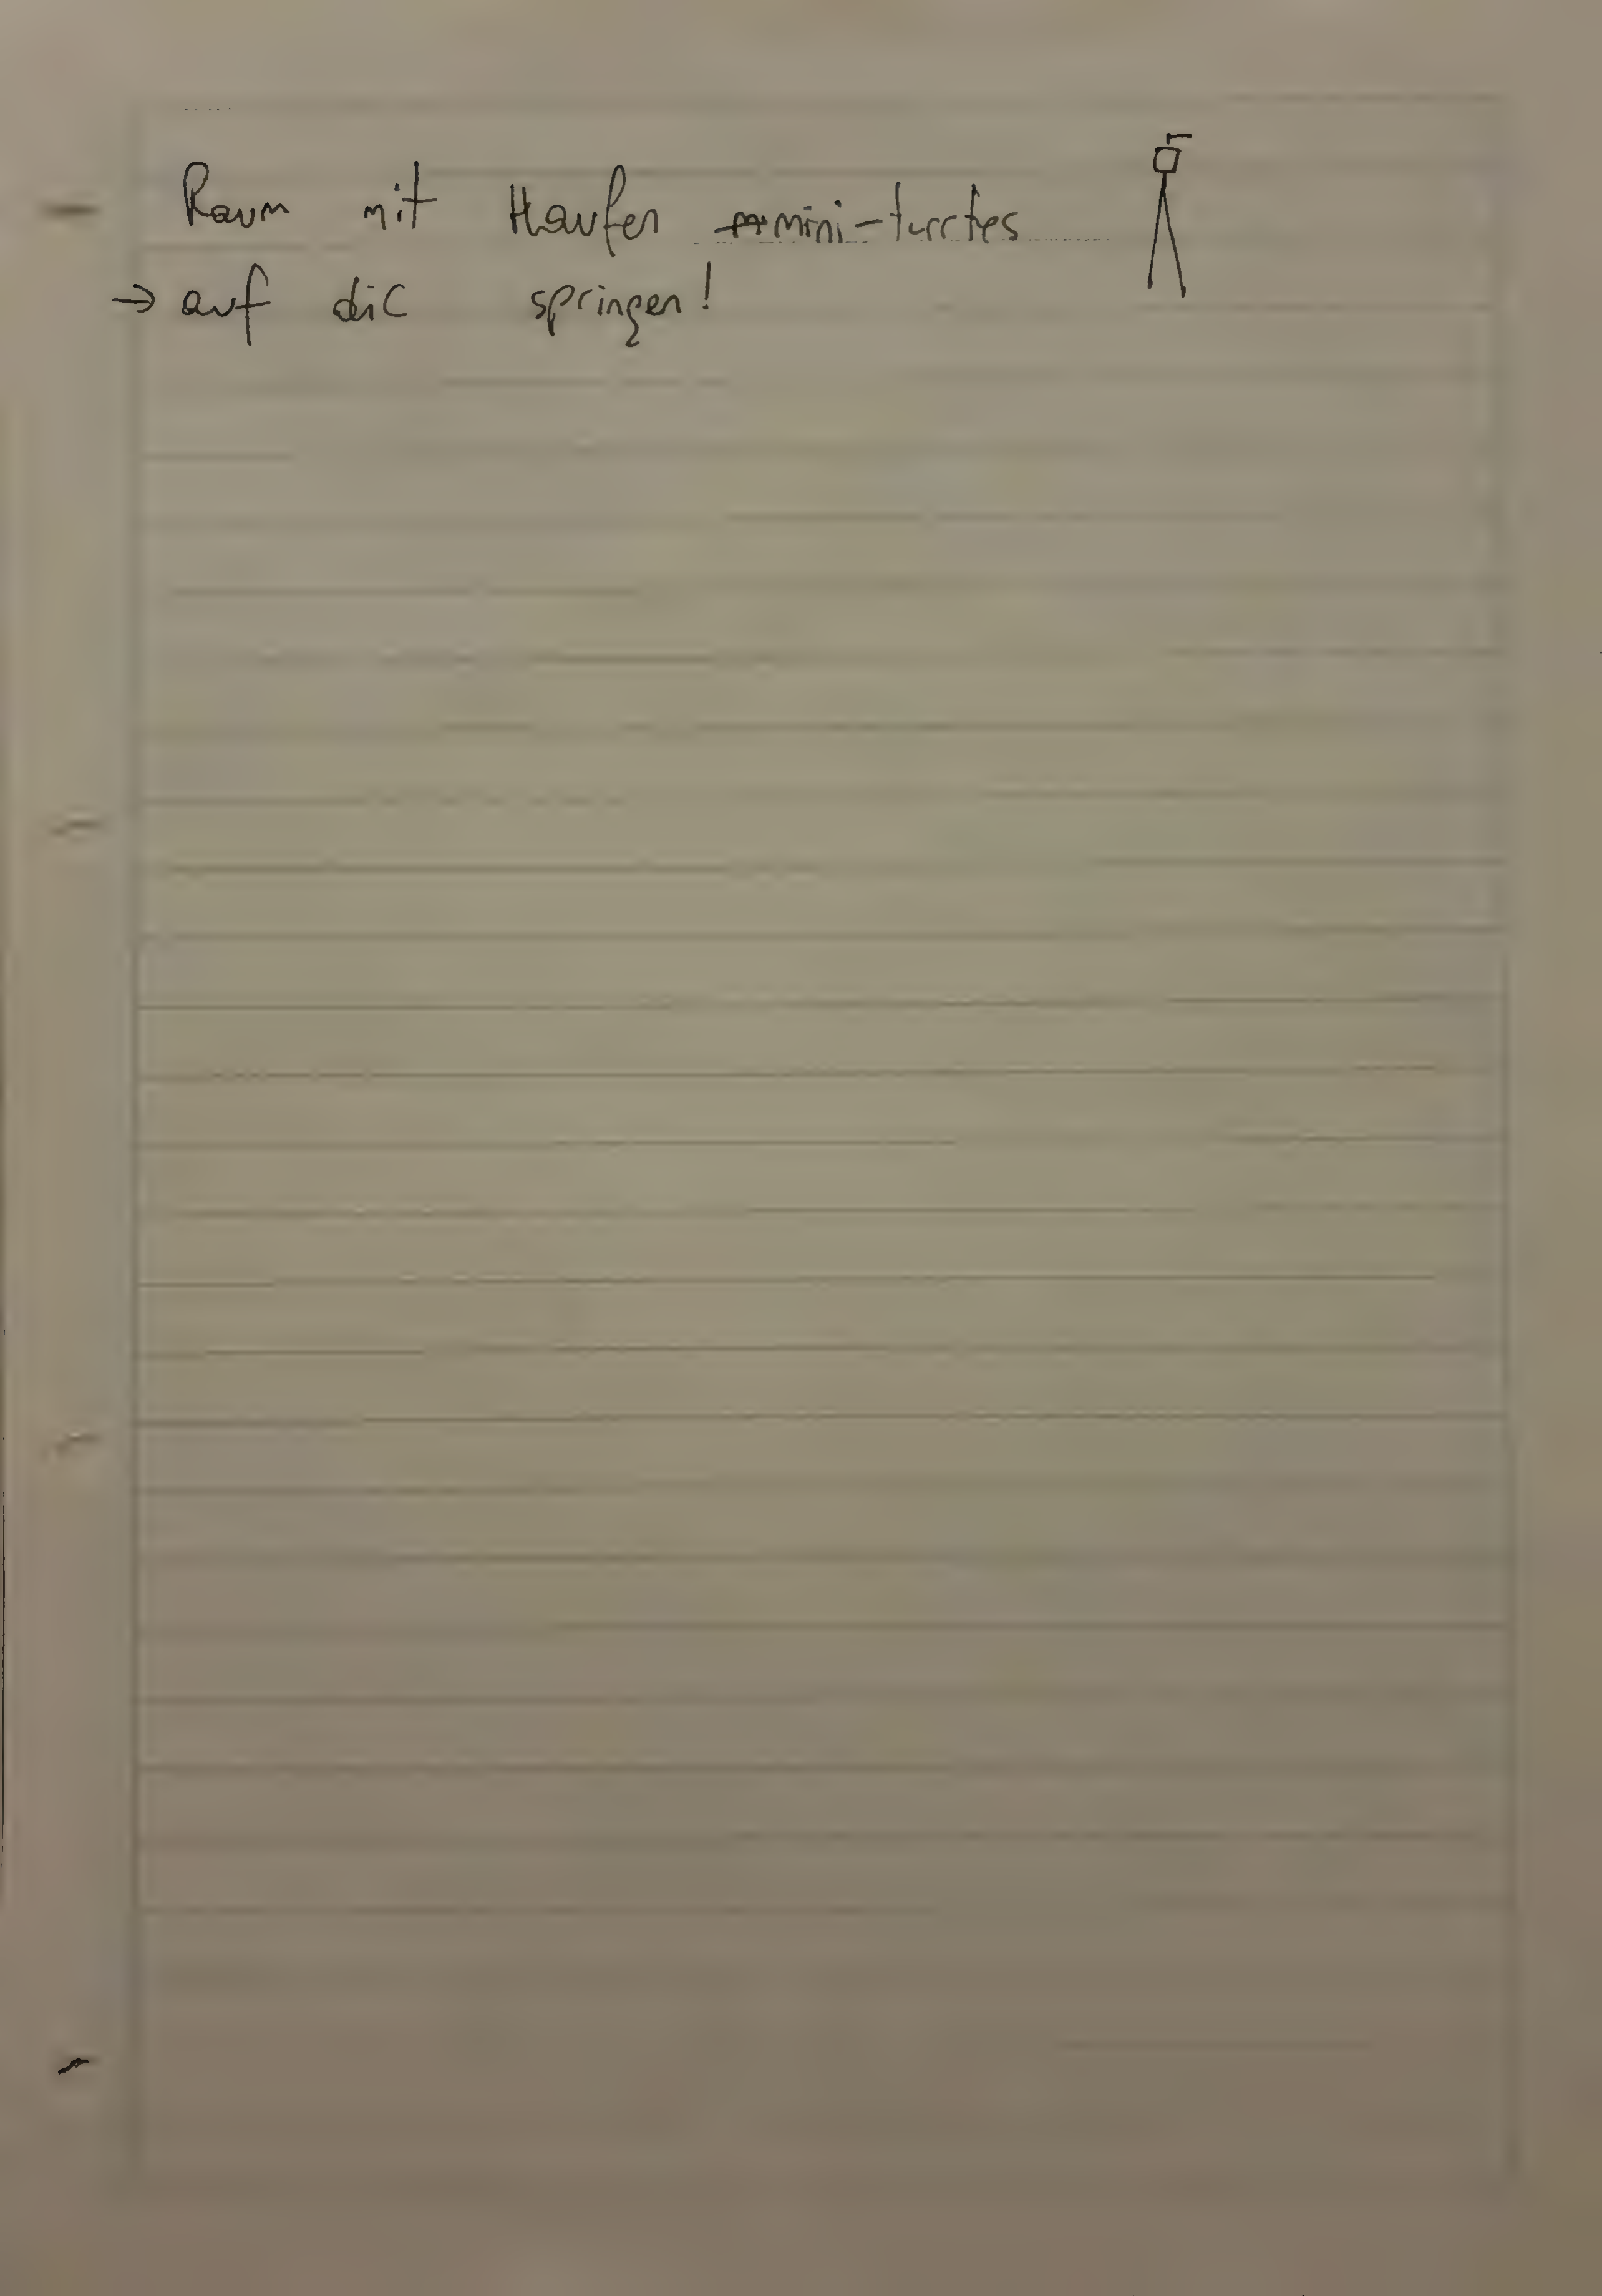 Raum mit Haufen mini-turrtes
→ auf die springen!